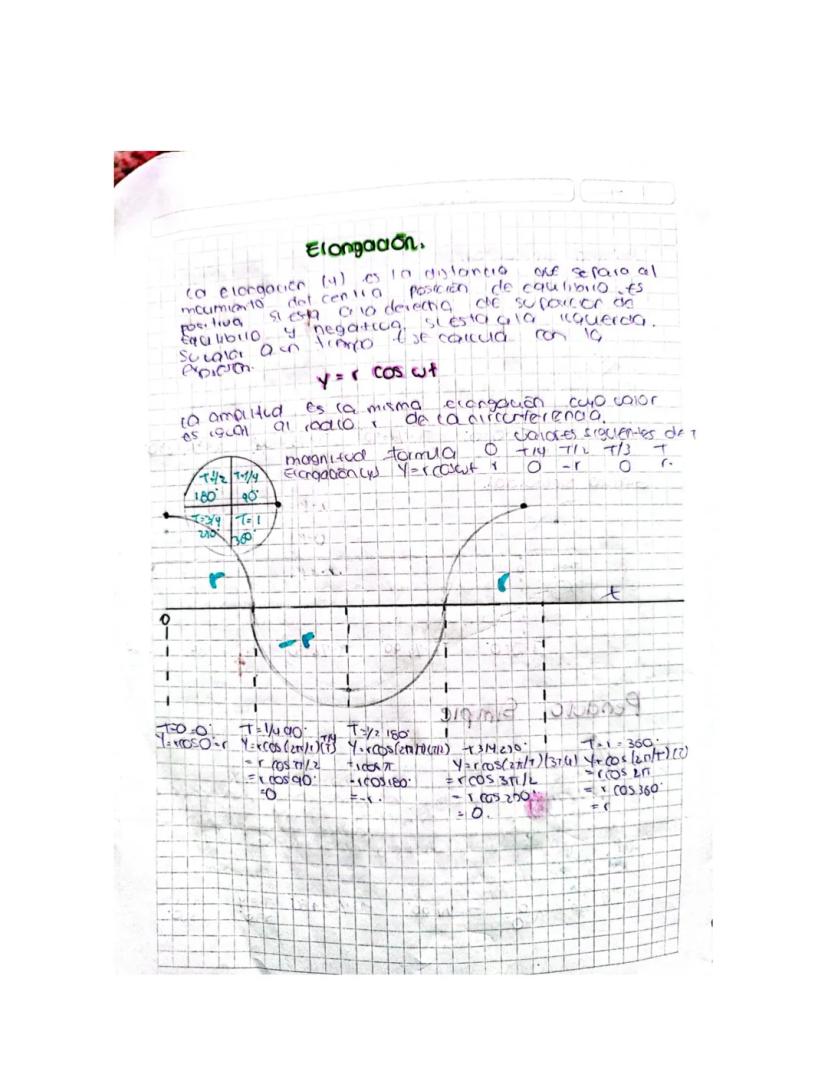 Elongación.
La elongación (y) es la distancia que separa al
movimiento del centro posición de equilibrio. es
positiva si esta a la derecha de su posición de
equilibrio y negativa si esta a la izquerda.
Su valor a un tiempo t se calcula con la
y = r cos wt
La amplitud es la misma elongación cuyo valor
es igual al radio r de la circunferencia.
Valores siguientes de T
magnitud formula 0 T/4 T/2 T/3 T
Elongación(y) Y=rcoswt r 0 -r 0 r.
T=1/2 T=1/4
180° 90°
T=3/4 T=1
270° 360°
r r
t
0
-r
T=0=0° T=1/4 90° T=1/2 180° T 3/4 270° T=1=360°
Y=rcos0°=r Y=rcos(2π/T)(T/4) Y=rcos(2π/T)(T/2) Y=rcos(2π/T)(3T/4) Y=rcos(2π/T)(T)
=r cos π/2 =rcosπ =rcos 3π/2 =rcos 2π
=r cos90° =rcos180° =r cos 270° =r cos360°
=0 =-r. =0. =r